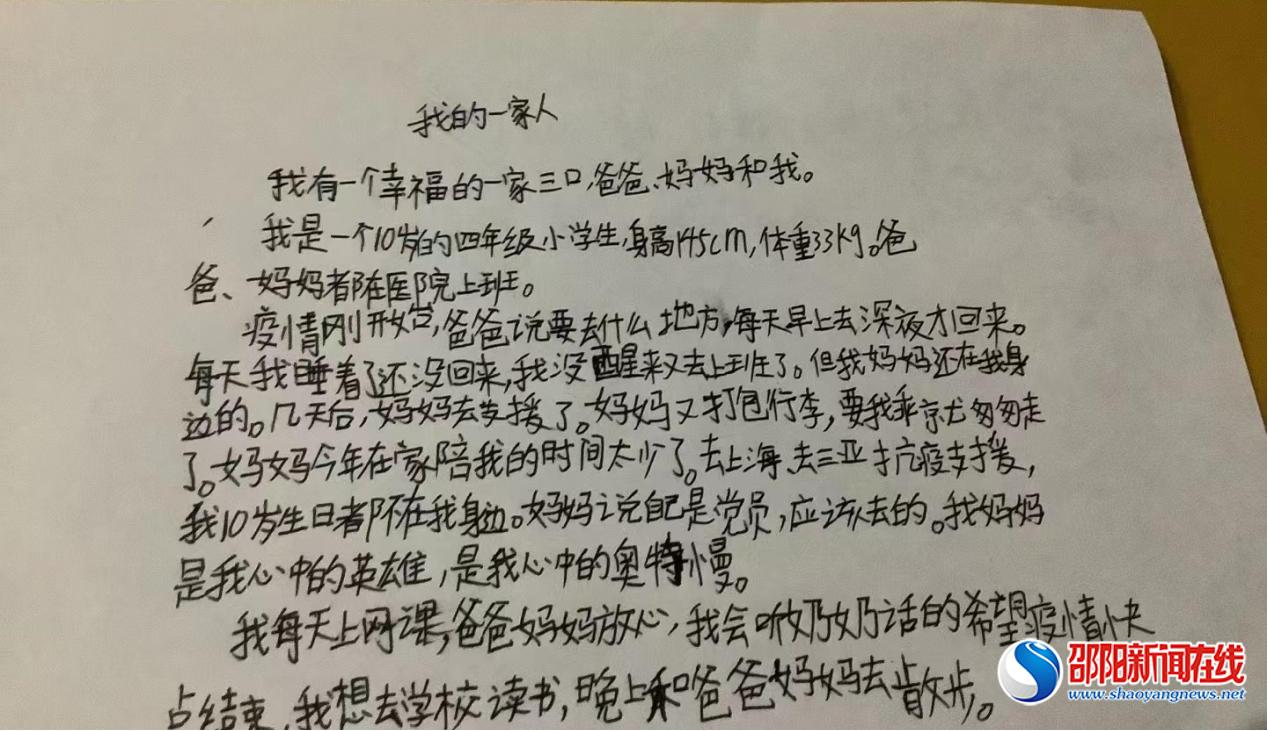 我的一家人
我有一个幸福的一家三口,爸爸、妈妈和我。
我是一个10岁的四年级小学生,身高145cm,体重33kg。爸
爸、妈妈都在医院上班。
疫情刚开始,爸爸说要去什么地方,每天早上去深夜才回来。
每天我睡着了还没回来,我没醒来又去上班了。但我妈妈还在我身
边的。几天后,妈妈去支援了。妈妈又打包行李,要我乖就匆匆走
了。妈妈今年在家陪我的时间太少了。去上海、去三亚抗疫支援,
我10岁生日都不在我身边。妈妈说自己是党员,应该去的。我妈妈
是我心中的英雄,是我心中的奥特慢。
我每天上网课,爸爸妈妈放心,我会听奶奶话的希望疫情快
点结束,我想去学校读书,晚上和爸爸妈妈去散步。
邵阳新闻在线
www.shaoyangnews.net